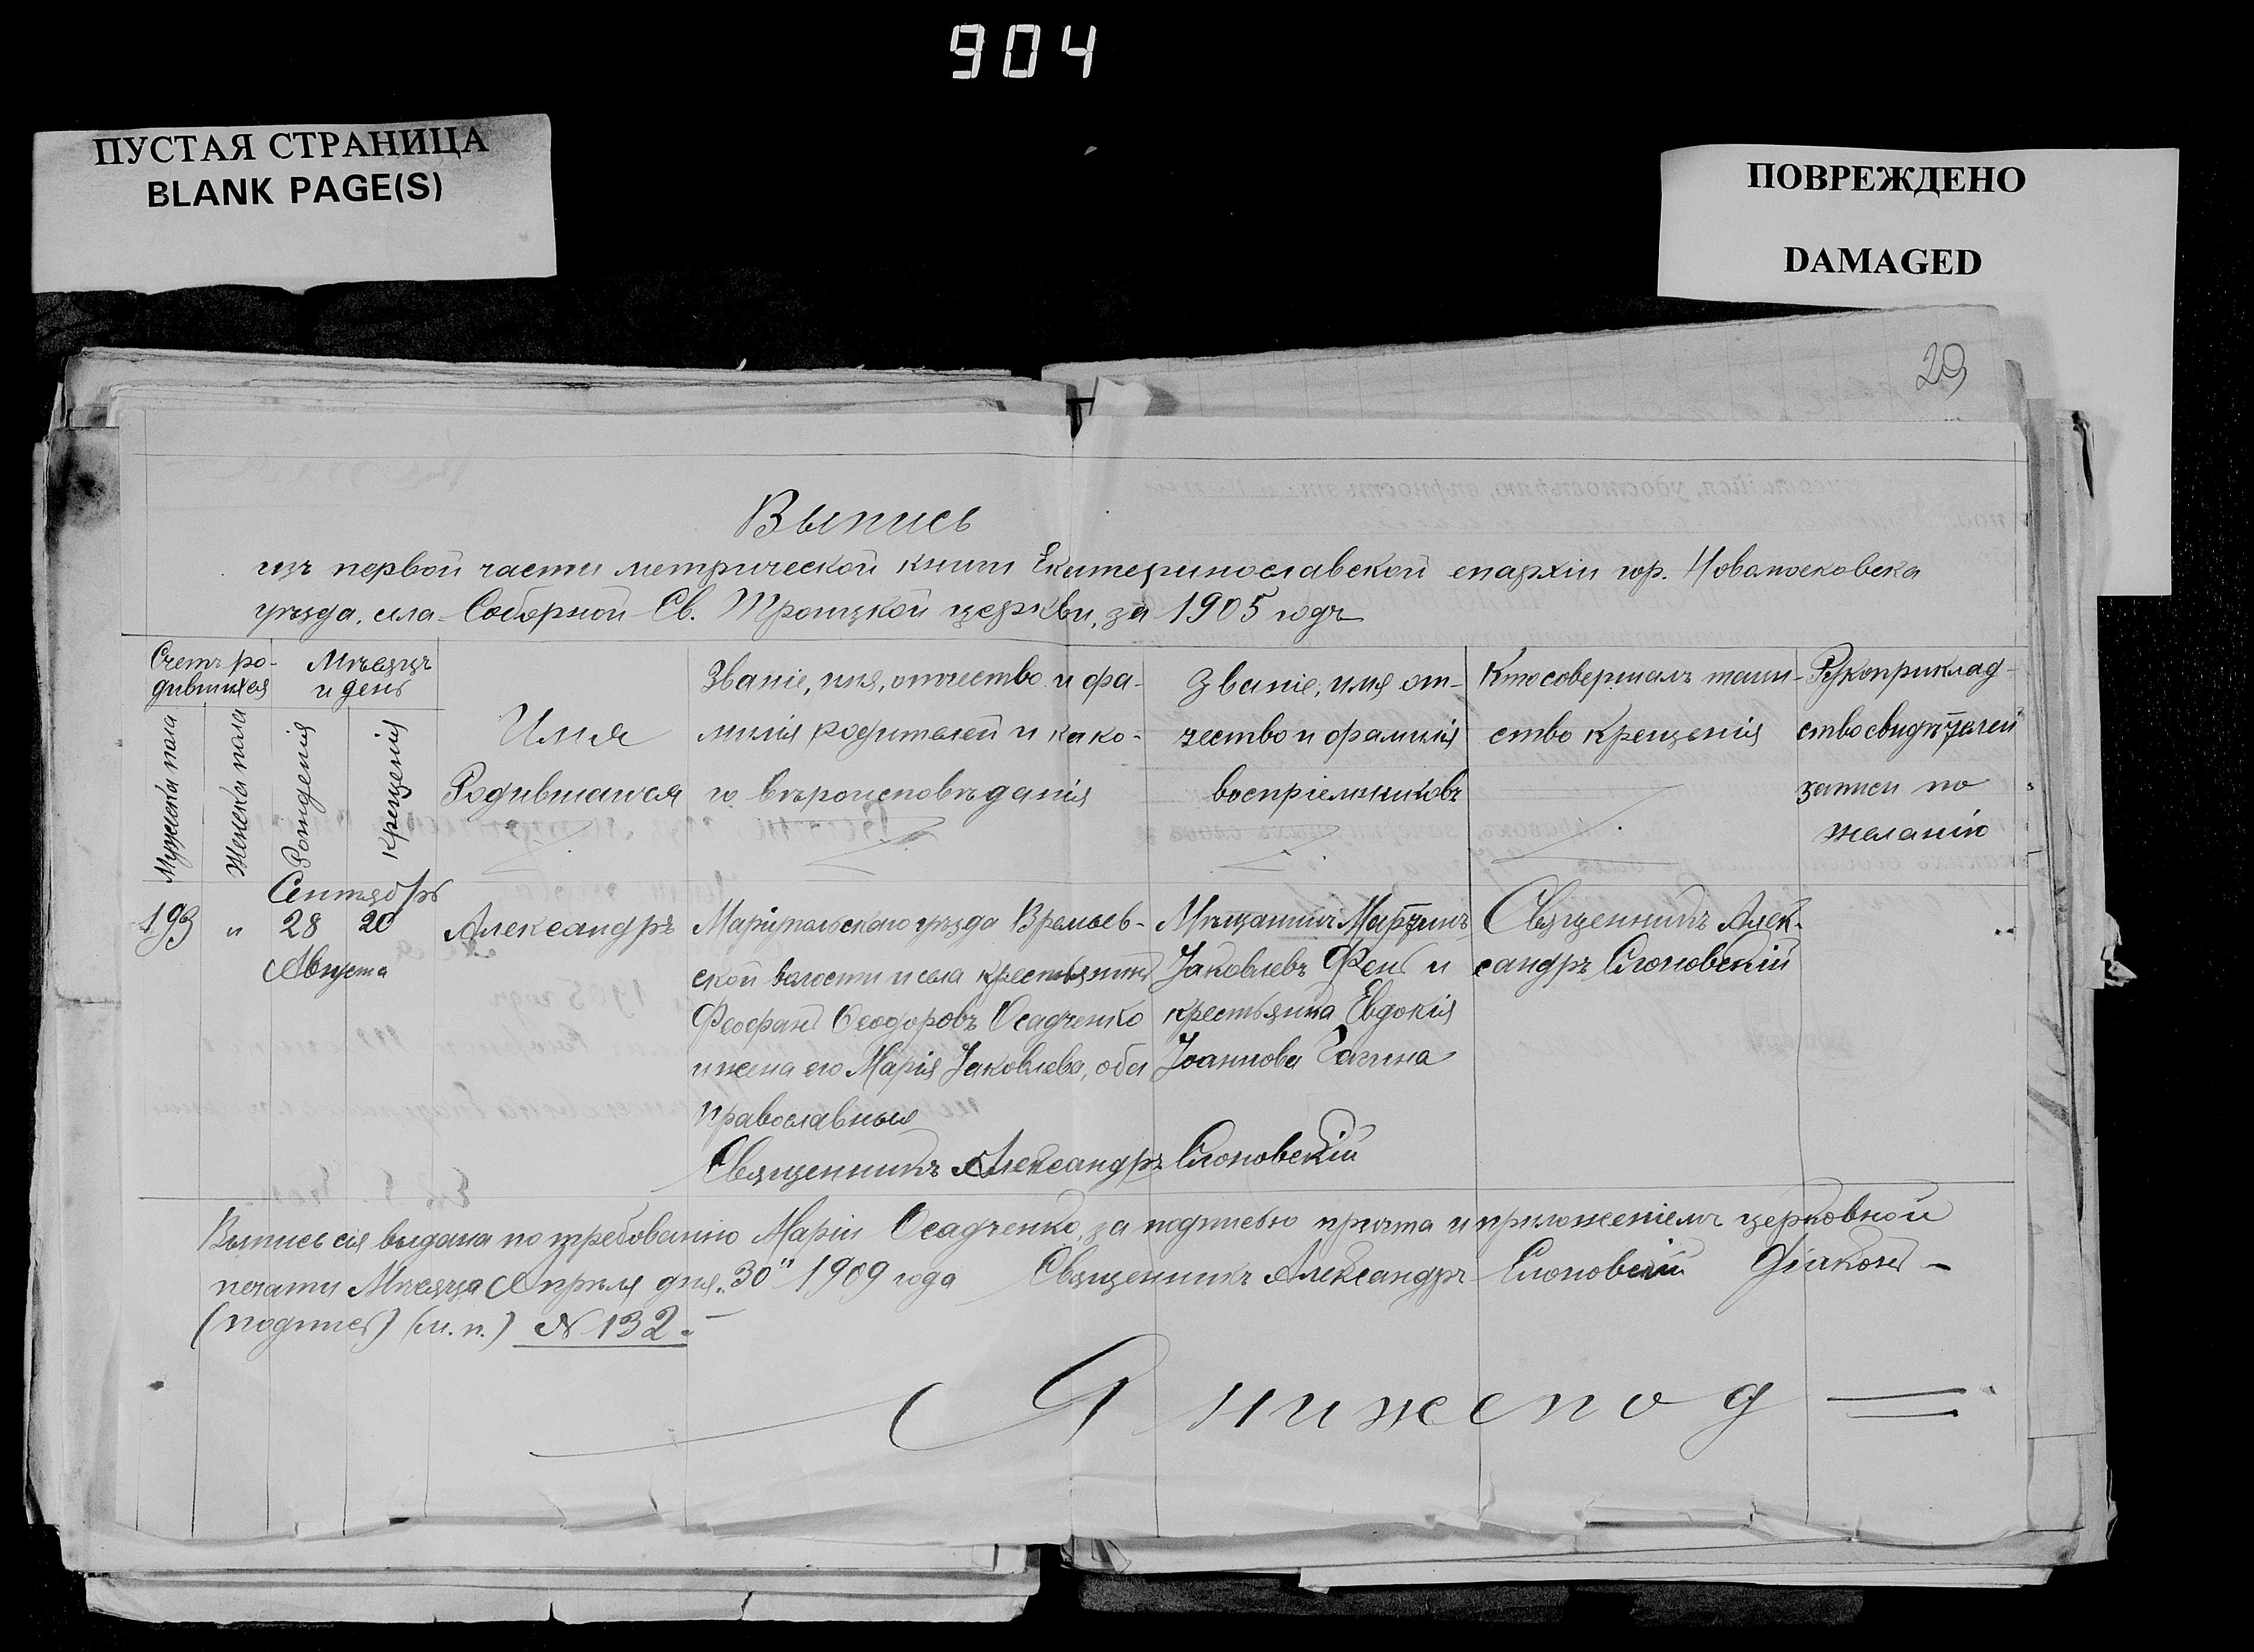 904
ПУСТАЯ СТРАНИЦА
BLANK PAGE(S)
ПОВРЕЖДЕНО
DAMAGED
29
Выпись
изъ первой части метрической книги Екатеринославской епархіи гор. Новомосковска
уѣзда, села Соборной Св. Троицкой церкви, за 1905 годъ
Счетъ ро-
дившихся
Мужеска пола
Женска пола
Мѣсяцъ
и день
Рожденія
Крещенія
Имя
Родившагося
Званіе, имя, отчество и фа-
милія родителей и како-
го вѣроисповѣданія
Званіе, имя от-
чество и фамилія
воспріемниковъ
Кто совершалъ таин-
ство крещенія
Рукоприклад-
ство свидѣтелей
записи по
желанію
Сентябрь
193 " 28 20
Августа
Александръ
Маріупольскаго уѣзда Времьев-
ской волости и села крестьянинъ
Феофанъ Феодоровъ Осадченко
и жена его Марія Іаковлева, оба
православные
Мѣщанинъ Мартинъ
Іаковлевъ Фень и
крестьянка Евдокія
Іоаннова
Священникъ Алек-
сандръ Слоновскій
Священникъ Александръ Слоновскій
Выпись сія выдана по требованію Маріи Осадченко, за подписью причта и приложеніемъ церковной
печати Мѣсяца Апрѣля дня „30" 1909 года Священникъ Александръ Слоновскій Діаконъ –
(подпись) (м. п.) № 132.–
Я нижепод =